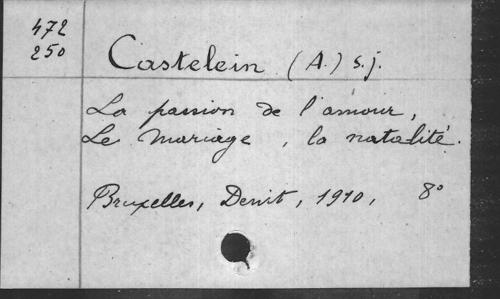 472
250
Castelein (A.) s.j.
La passion de l'amour,
Le mariage, la natalité.
Bruxelles, Dewit, 1910, 8°